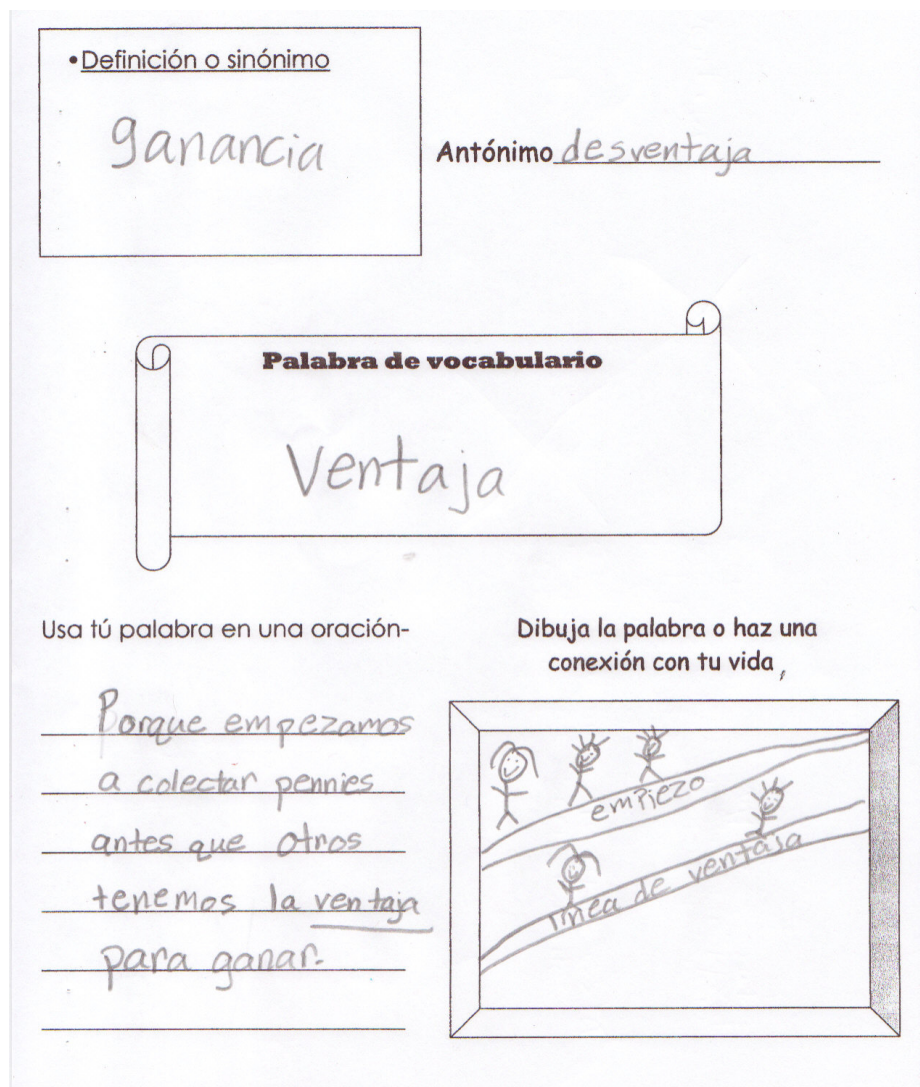 •Definición o sinónimo
ganancia
Antónimo desventaja
Palabra de vocabulario
Ventaja
Usa tú palabra en una oración-
Porque empezamos
a colectar pennies
antes que otros
tenemos la ventaja
para ganar.
Dibuja la palabra o haz una
conexión con tu vida,
empiezo
línea de ventaja